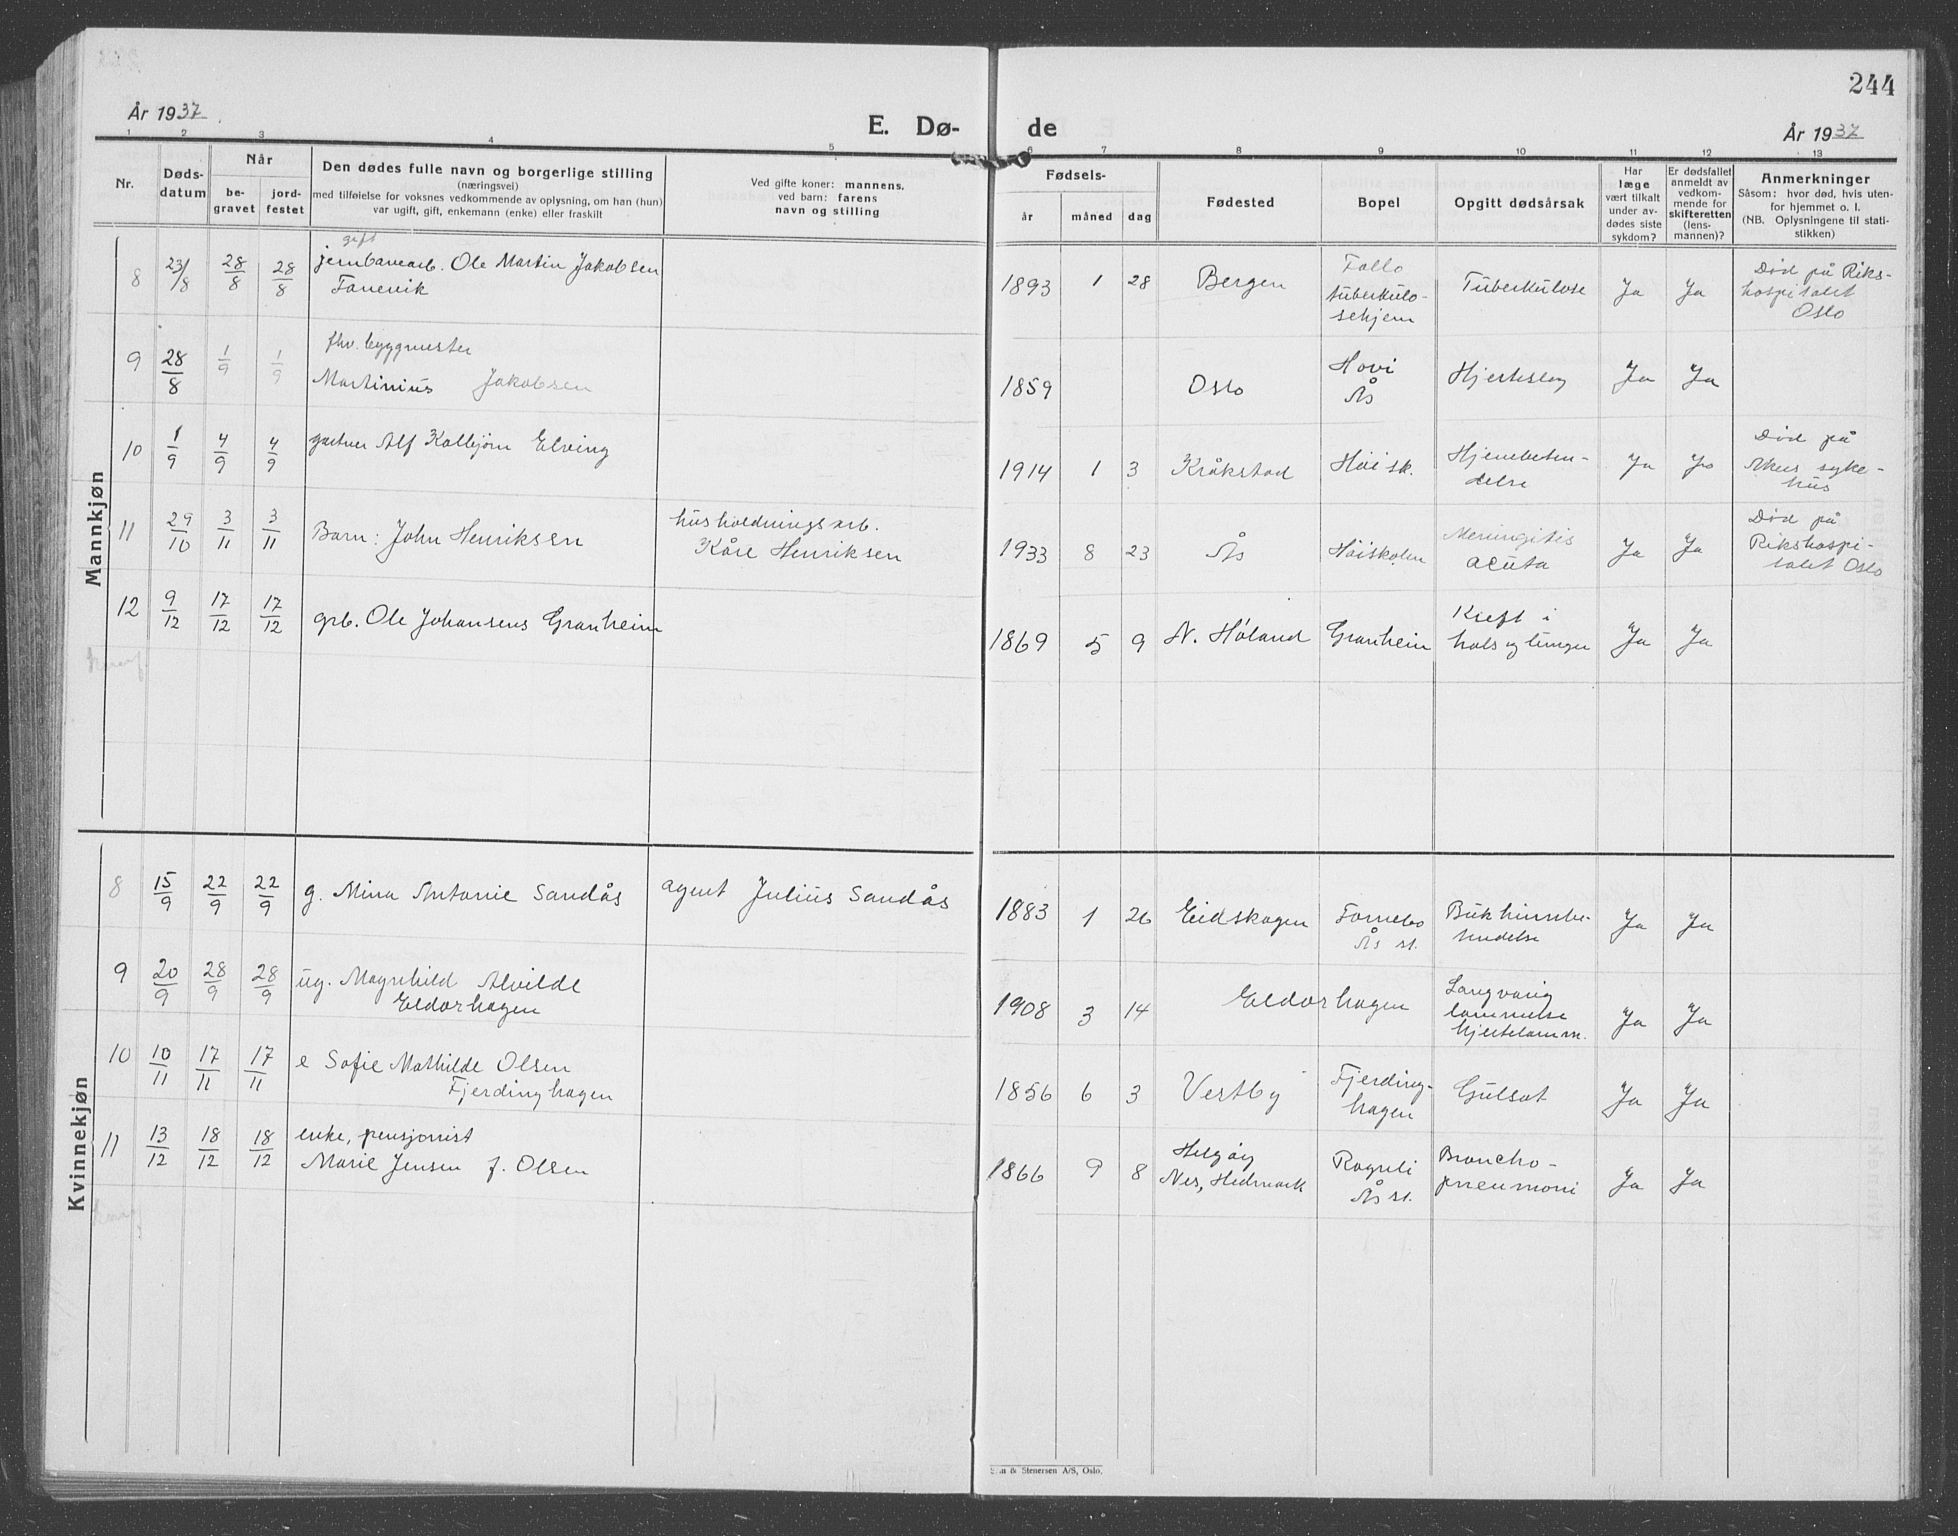 244
År 1937
E. Dø-
de
År 1937
1 2 3 4 5 6 7 8 9 10 11 12 13
Nr.
Døds-
datum
Når
be-
gravet
jord-
festet
Den dødes fulle navn og borgerlige stilling
(næringsvei)
med tilføielse for voksnes vedkommende av oplysning, om han (hun)
var ugift, gift, enkemann (enke) eller fraskilt
Ved gifte koner: mannens,
ved barn: farens
navn og stilling
Fødsels-
år
måned
dag
Fødested
Bopel
Opgitt dødsårsak
Har
læge
vært tilkalt
under av-
dødes siste
sykdom?
Er dødsfallet
anmeldt av
vedkom-
mende for
skifteretten
(lens-
mannen)?
Anmerkninger
Såsom: hvor død, hvis uten-
for hjemmet o. l.
(NB. Oplysningene til stati-
stikken)
Mannkjøn
gift
8 23/8 28/8 28/8 jernbanearb. Ole Martin Jakobsen
Fanevik
1893 1 28 Bergen
Follo
tuberkulo-
sehjem
Tuberkulose Ja Ja
Død på Riks-
hospitalet
Oslo
9 28/8 1/9 1/9 fhv. byggmester
Martinius Jakobsen
1859 Oslo
Hovi
Ås
Hjerteslag Ja Ja
10 1/9 4/9 4/9 gartner Alf Kolbjørn Elving
1914 1 3 Kråkstad Høisk.
Hjernebeten-
delse
Ja Ja
Død på
Akers syke-
hus
11 29/10 3/11 3/11 Barn: John Henriksen
husholdningsarb.
Kåre Henriksen
1933 8 23 Ås Høiskolen
Meningitis
acuta
Ja Ja
Død på
Rikshospi-
talet Oslo
12 9/12 17/12 17/12 grb. Ole Johansens Granheim
1869 5 9 N. Høland Granheim
Kreft i
hals og lunger
Ja Ja
Kvinnekjøn
8 15/9 22/9 22/9 g. Mina Antonie Sandås
agent Julius Sandås
1883 1 26 Eidskogen
Fornebo
Ås st.
Bukhinnebe-
tendelse
Ja Ja
9 20/9 28/9 28/9 ug. Magnhild Alvilde
Eldorhagen
1908 3 14 Eldorhagen
Langvarig
lammelse
hjertelamm.
Ja Ja
10 10/11 17/11 17/11 e Sofie Mathilde Olsen
Fjerdinghagen
1856 6 3 Vestby
Fjerding-
hagen
Gulsot Ja Ja
11 13/12 18/12 18/12 enke, pensjonist
Marie Jensen f. Olsen
1866 9 8
Helgøy
Nes, Hedmark
Rognli
Ås st.
Broncho-
pneumoni
Ja Ja
& Stenersen A/S, Oslo.